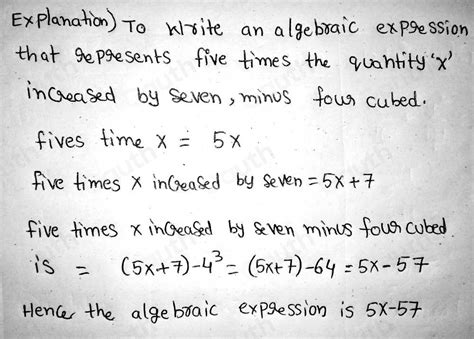 Explanation) To Write an algebraic expression
that represents five times the quantity 'x'
increased by seven, minus four cubed.
fives time x = 5x
five times x increased by seven = 5x+7
five times x increased by seven minus four cubed
is = (5x+7)-4³ = (5x+7)-64 = 5x-57
Hence the algebraic expression is 5x-57